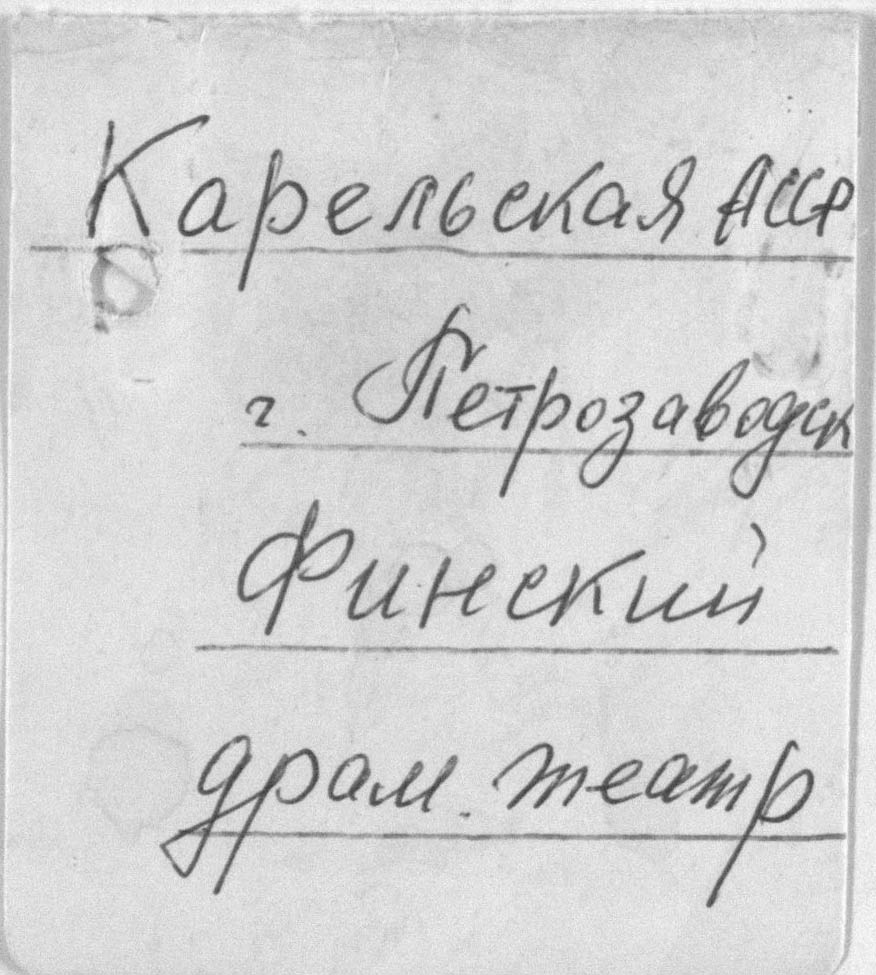 Карельская АССР
г. Петрозаводск
Финский
драм. театр